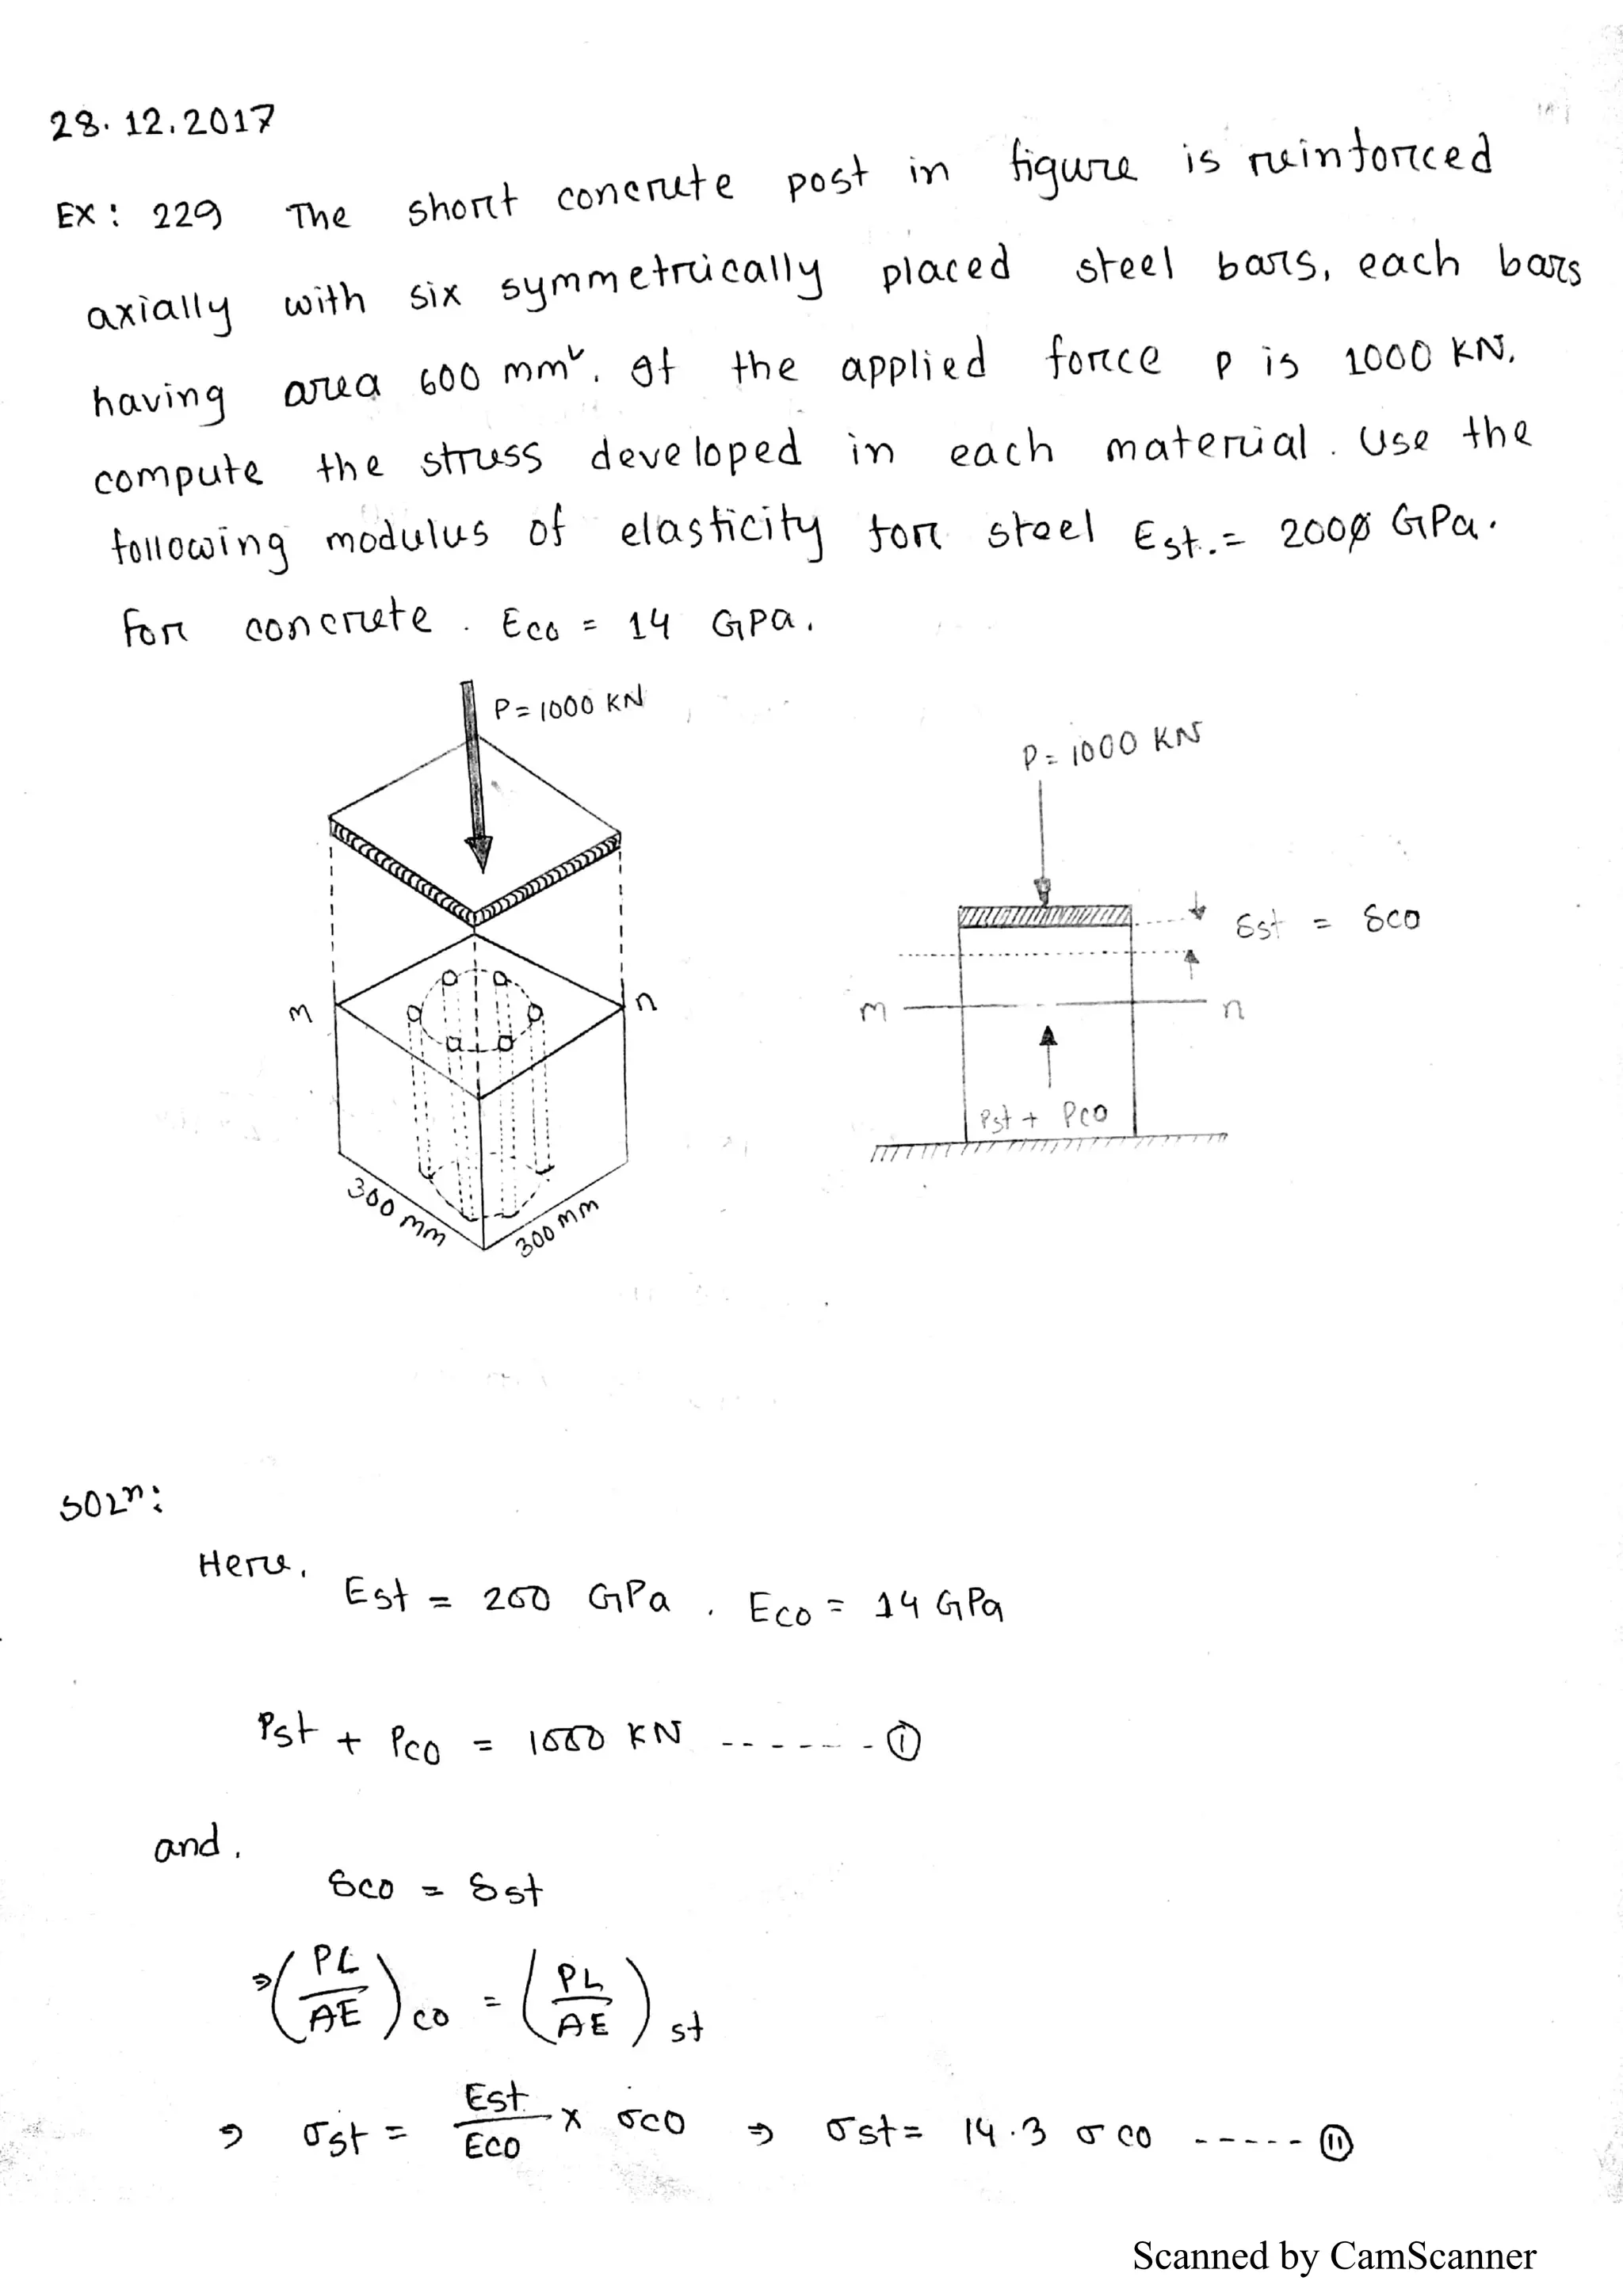 28.12.2017
EX: 229 The short concrete post in figure is reinforced
axially with six symmetrically placed steel bars, each bars
having area 600 mm². If the applied force P is 1000 KN.
compute the stress developed in each material. Use the
following modulus of elasticity for steel Est. = 200 GPa.
For concrete. Eco = 14 GPa.
P = 1000 KN
P = 1000 KN
δst = δco
m
n
m
n
Pst + Pco
300 mm
300 mm
SOLⁿ:
Here,
Est = 200 GPa. Eco = 14 GPa
Pst + Pco = 1000 KN ------- ①
and,
δco = δst
⇒ (PL/AE)co = (PL/AE)st
⇒ σst = Est/Eco × σco ⇒ σst = 14.3 σco ----- ⑪
Scanned by CamScanner